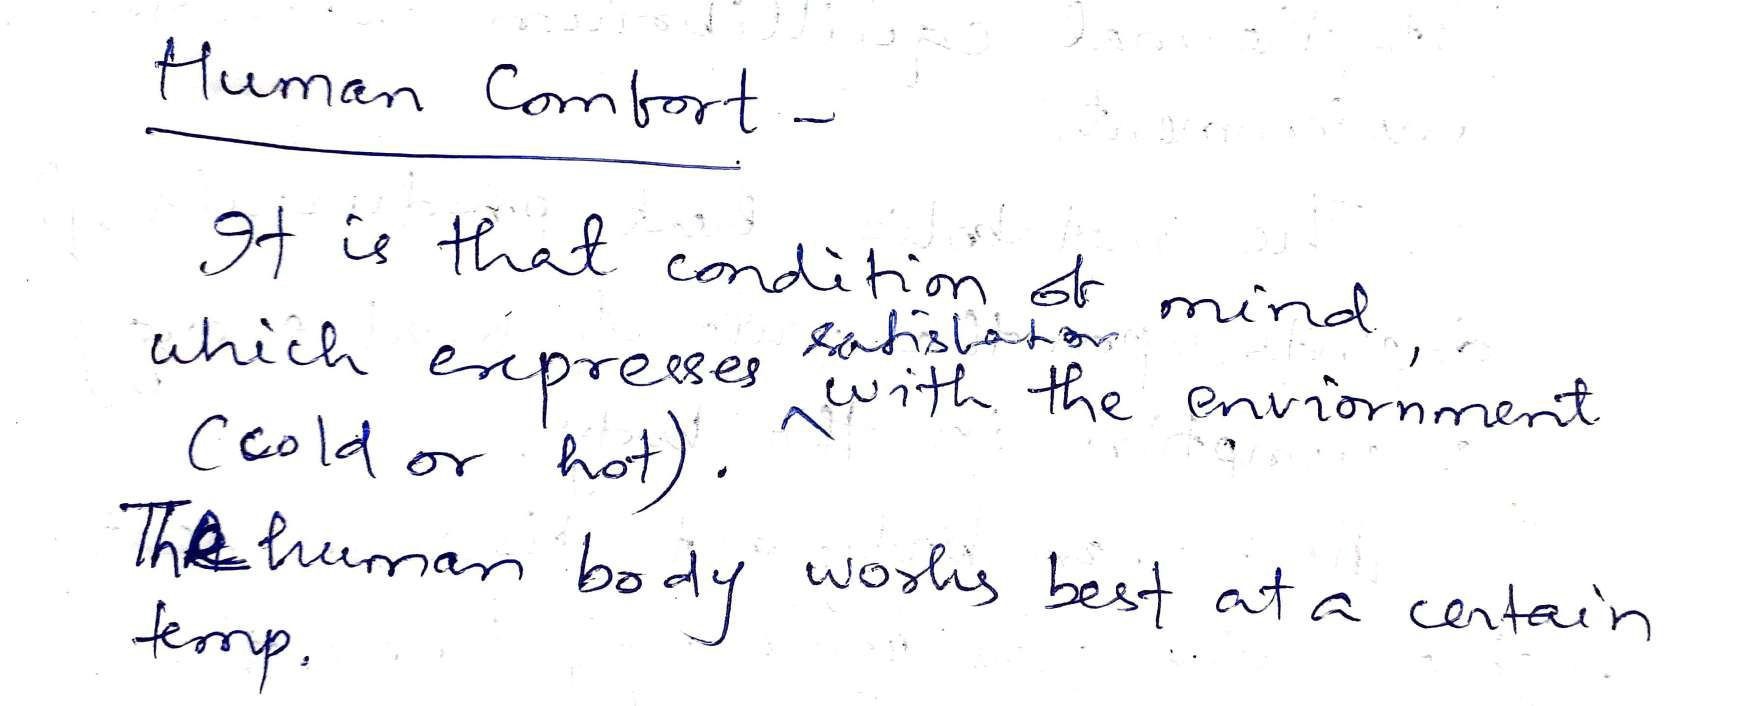 Human Comfort -
It is that condition of mind,
which expresses satisfaction with the enviornment
(cold or hot).
The human body works best at a certain
temp.